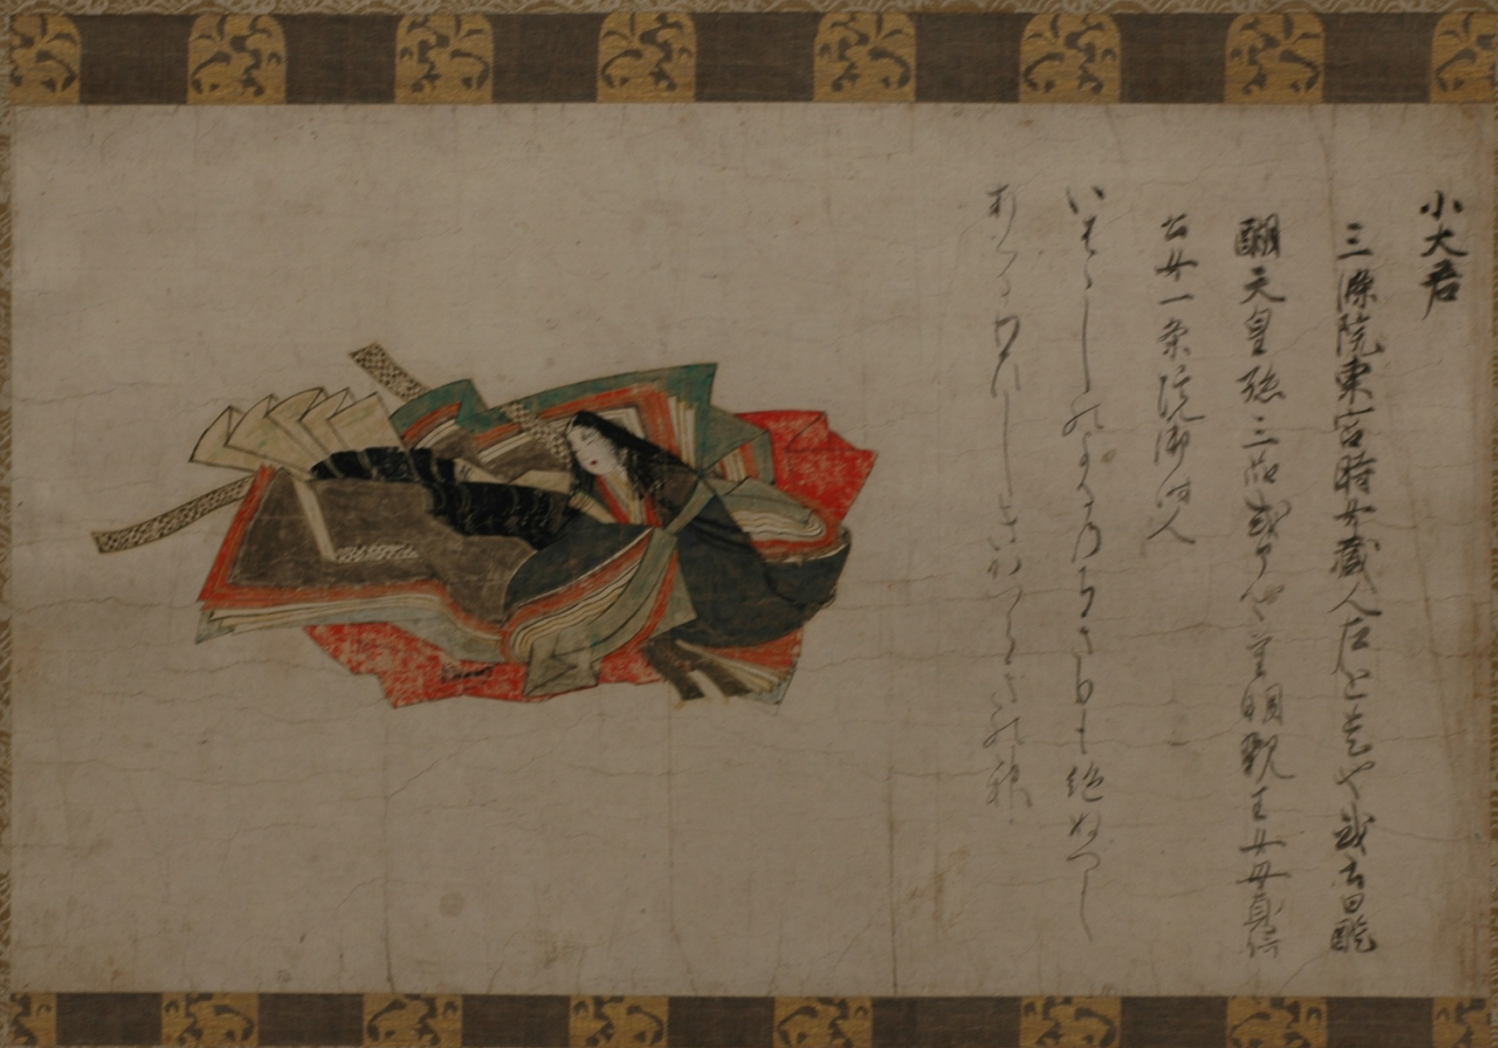 小大君
三條院東宮時女蔵人左近 或書曰醍
醐天皇孫三品式部卿重明親王女母貞信
公女一条院御時人
いはゝしのよるのちきりも絶ぬへし
あくるわひしきかつらきの神